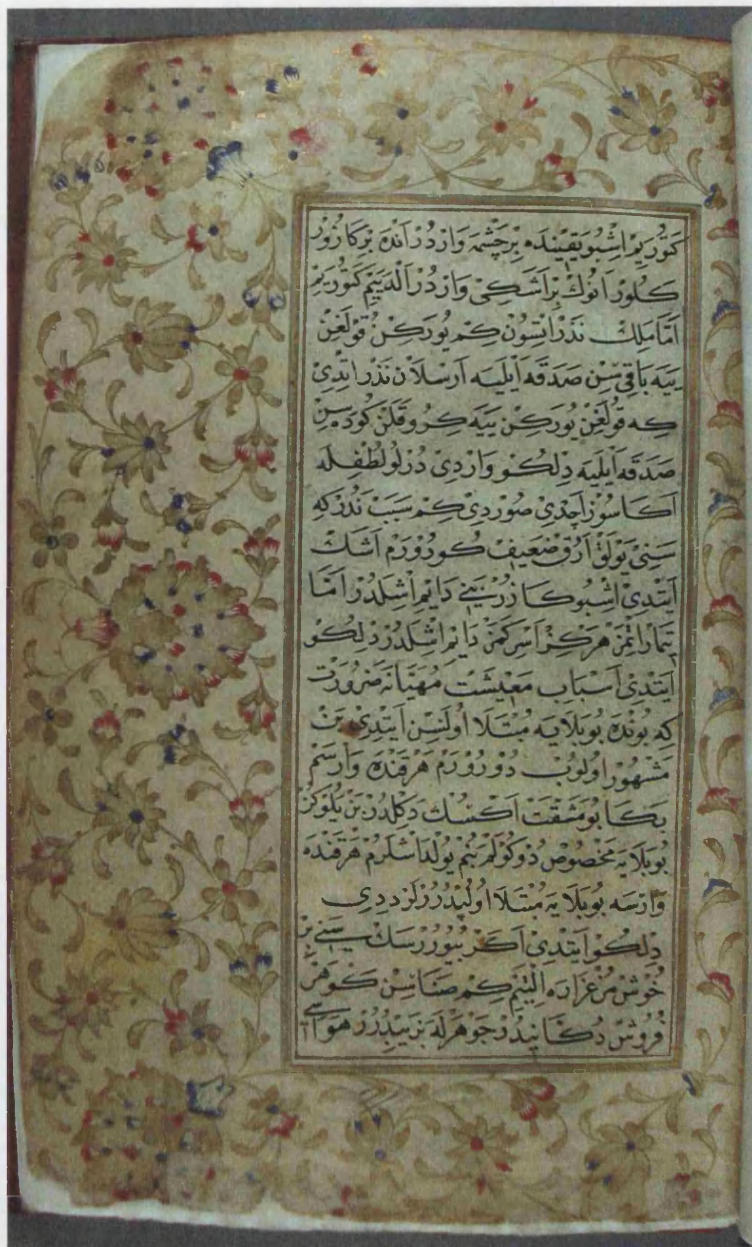 كَتُورَيِمْ اشْبُو يَقِينِنْدَه بِرْ چَشْمَه وَارْدُرْ اَنْدَه بِرْ كَازُرْ وَرْ
كَلُورْ اَنُوكْ بِرْ اَشَكِى وَارْدُرْ اَلْدَيَيِمْ كَتُورَيِمْ
اَمَّا مَلِكْ نَذَرْ اِتْسُونْ كِمْ يُورَكِنْ قُولَغِنْ
يِيَه بَاقِيسِنْ صَدَقَه اَيْلِيَه اَرْسْلَانْ نَذَرْ اِتْدِى
كِه قُولَغِنْ يُورَكِنْ يِيَه كِرُو قَلَنْ كَودَه سِنْ
صَدَقَه اَيْلِيَه دِلْكُو وَارْدِى دُرْلُو لُطْفِلَه
اَكَا سُوزْ اَچْدِى صُورْدِى كِمْ سَبَبْ نَدُرْ كِه
سَنِى يَوْلَقْ اَرُقْ ضَعِيفْ كُورُورَمْ اَشَكْ
اَيِتْدِى اشْبُو كَازُرْ بَنِى دَايِمْ اِشْلَدُرْ اَمَّا
تِيمَارْ اِتْمَزْ هَرْكِزْ اَسِرْكَمَزْ دَايِمْ اِشْلَدُرْ دِلْكُو
اَيِتْدِى اَسْبَابِ مَعِيشَتْ مُهَيَّا نَه ضَرُورَتْ
كِه بُونْدَه بُو بَلَايَه مُبْتَلَا اُولَسِنْ اَيِتْدِى بَنْ
مَشْهُورْ اُولُوبْ دُورُورَمْ هَرْ قَنْدَه وَارْسَمْ
بَكَا بُو مَشَقَّتْ اَكْسُكْ دَكُلْدُرْ بَنْ يَلُوكُزْ
بُو بَلَايَه مَخْصُوصْ دُوكُولَمْ بَنُمْ يُولْدَاشْلَرُمْ هَرْ قَنْدَه
وَارْسَه بُو بَلَايَه مُبْتَلَا اُولُپْدُرُرْلَرْ دِدِى
دِلْكُو اَيِتْدِى اَكَرْ بُيُورُرْسَكْ سَنِى بِرْ
خُوشْ مَرْغَزَارَه اِلْتَيِمْ كِمْ صَنَاسِنْ كَوْهَرْ
فُرُوشْ دُكَّانِيدُرْ جَوْهَرْلَه بَزَنِبْدُرُرْ هَوَاسِى